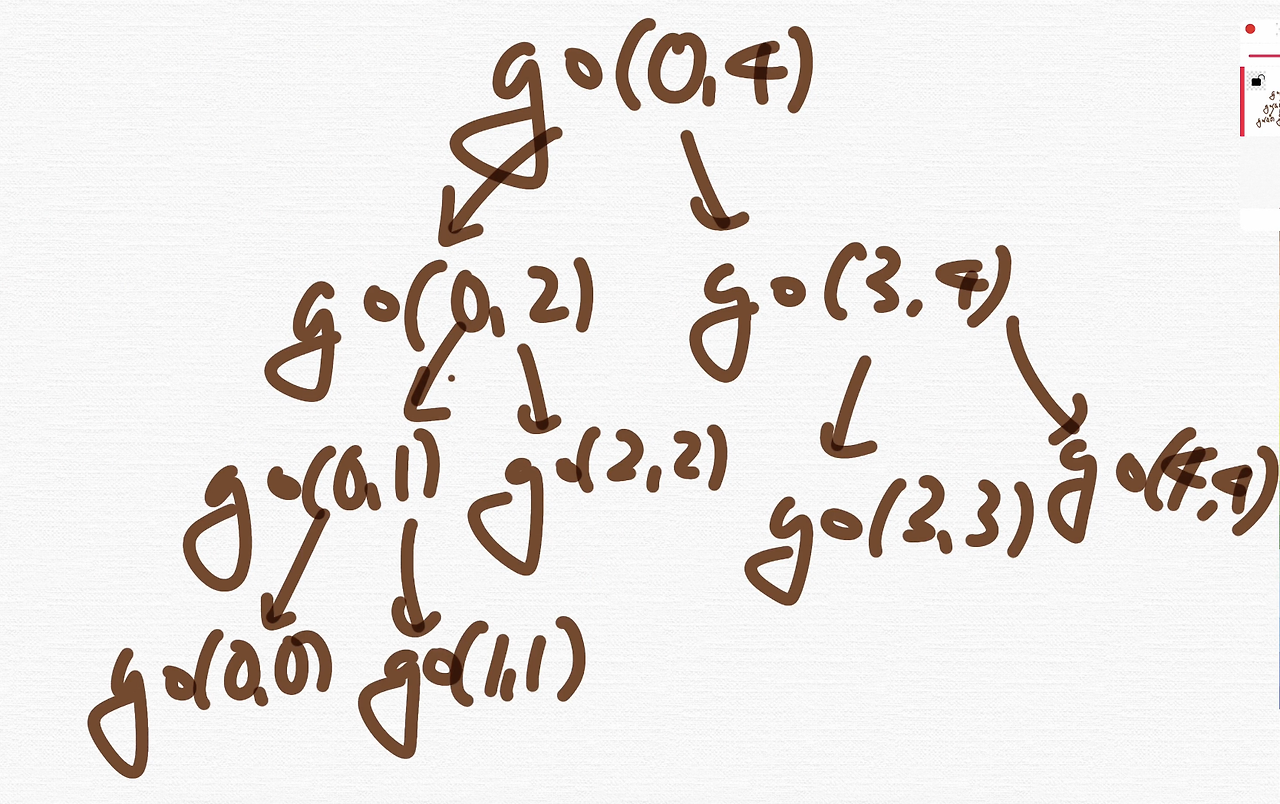 go(0,4)
go(0,2) go(3,4)
go(0,1) go(2,2) go(3,3) go(4,4)
go(0,0) go(1,1)